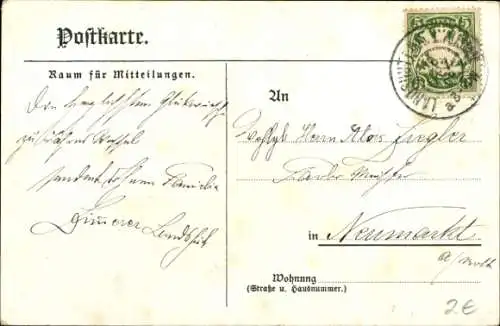 Postkarte.
Raum für Mitteilungen.
Die herzlichsten Glückwünsche
zum Jahreswechsel
sendet Ihnen Familie
Landshut
An
Herrn Alois Ziegler
in Neumarkt
a/Roth
Wohnung
(Straße u. Hausnummer.)
5
5
LANDSHUT
2€